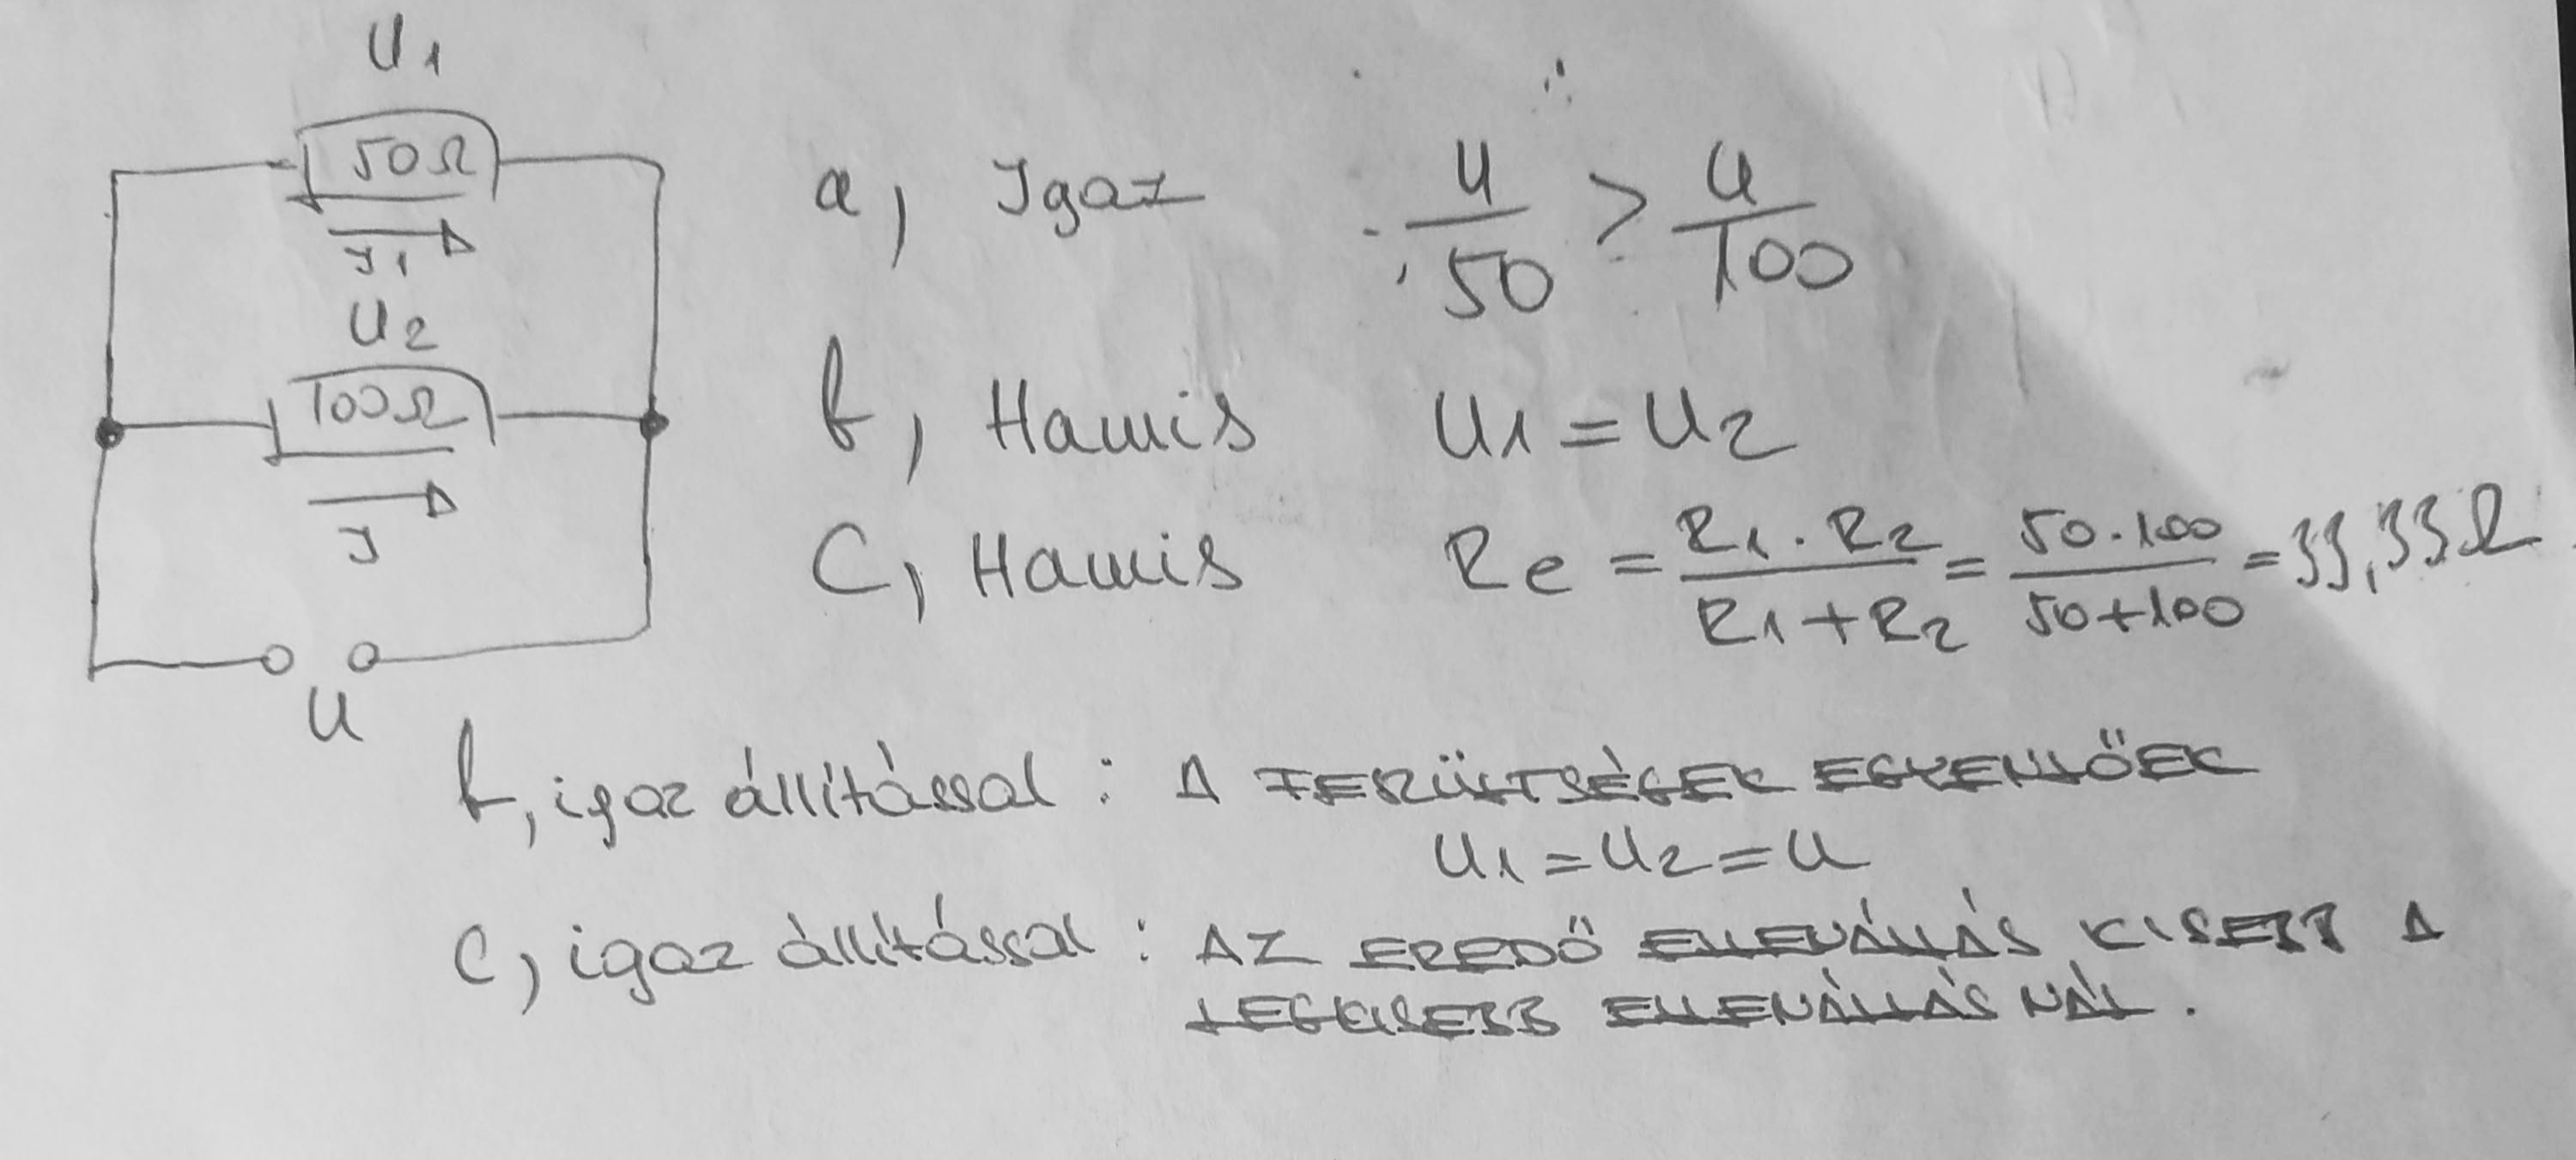 U1
50Ω
I1
U2
100Ω
I
U
a, Igaz U/50 > U/100
b, Hamis U1 = U2
C, Hamis Re = R1·R2/R1+R2 = 50·100/50+100 = 33,33Ω
b, igaz állítással : A FESZÜLTSÉGEK EGYENLŐEK
U1 = U2 = U
C, igaz állítással : AZ EREDŐ ELLENÁLLÁS KISEBB A
LEGKISEBB ELLENÁLLÁSNÁL.